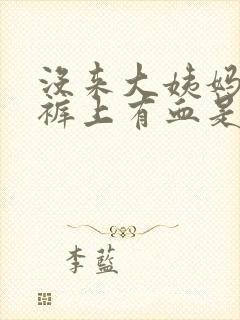 没来大姨妈
裤上有血是
李藍